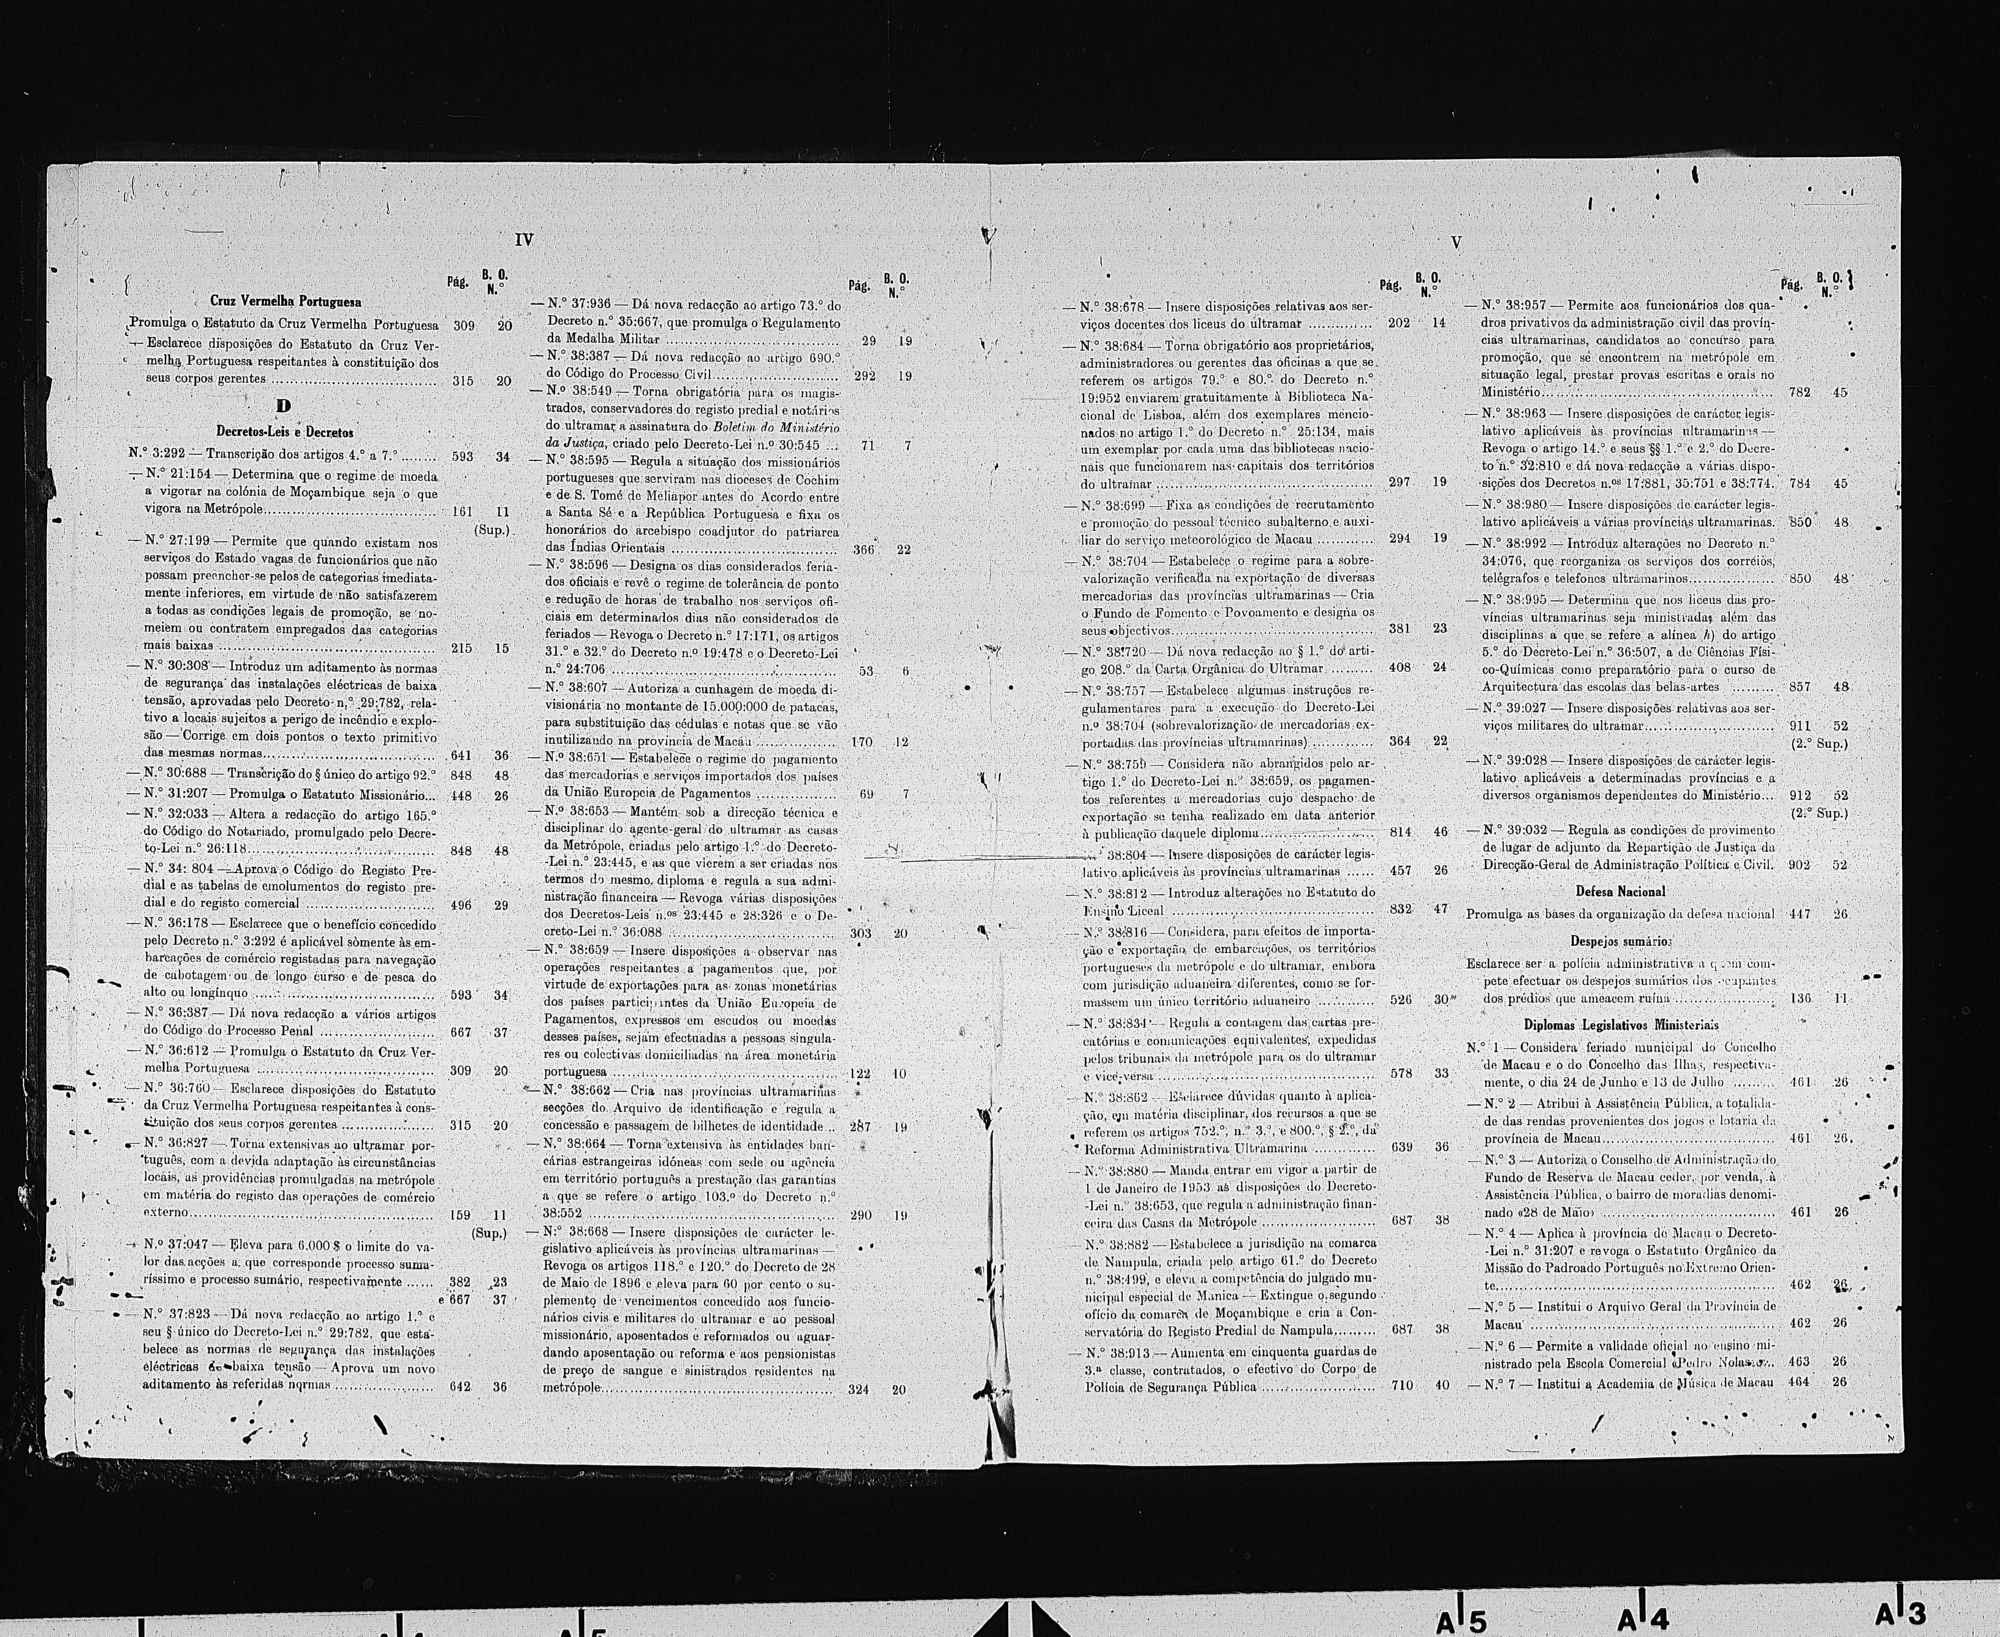 IV
Pág. B. O. N.°
Cruz Vermelha Portuguesa
Promulga o Estatuto da Cruz Vermelha Portuguesa 309 20
— Esclarece disposições do Estatuto da Cruz Ver-
melha Portuguesa respeitantes à constituição dos
seus corpos gerentes ................ 315 20
D
Decretos-Leis e Decretos
N.° 3:292 — Transcrição dos artigos 4.° a 7.° ........ 593 34
— N.° 21:154 — Determina que o regime de moeda
a vigorar na colónia de Moçambique seja o que
vigora na Metrópole................ 161 11
(Sup.)
— N.° 27:199 — Permite que quando existam nos
serviços do Estado vagas de funcionários que não
possam preencher-se pelos de categorias imediata-
mente inferiores, em virtude de não satisfazerem
a todas as condições legais de promoção, se no-
meiem ou contratem empregados das categorias
mais baixas ................ 215 15
— N.° 30:308 — Introduz um aditamento às normas
de segurança das instalações eléctricas de baixa
tensão, aprovadas pelo Decreto n.° 29:782, rela-
tivo a locais sujeitos a perigo de incêndio e explo-
são — Corrige em dois pontos o texto primitivo
das mesmas normas................ 641 36
— N.° 30:688 — Transcrição do § único do artigo 92.° 848 48
— N.° 31:207 — Promulga o Estatuto Missionário... 448 26
— N.° 32:033 — Altera a redacção do artigo 165.°
do Código do Notariado, promulgado pelo Decre-
to-Lei n.° 26:118................ 848 48
— N.° 34: 804 — Aprova o Código do Registo Pre-
dial e as tabelas de emolumentos do registo pre-
dial e do registo comercial ................ 496 29
— N.° 36:178 — Esclarece que o benefício concedido
pelo Decreto n.° 3:292 é aplicável sòmente às em-
barcações de comércio registadas para navegação
de cabotagem ou de longo curso e de pesca do
alto ou longínquo ................ 593 34
— N.° 36:387 — Dá nova redacção a vários artigos
do Código do Processo Penal ................ 667 37
— N.° 36:612 — Promulga o Estatuto da Cruz Ver-
melha Portuguesa ................ 309 20
— N.° 36:760 — Esclarece disposições do Estatuto
da Cruz Vermelha Portuguesa respeitantes à cons-
tituição dos seus corpos gerentes ................ 315 20
— N.° 36:827 — Torna extensivas ao ultramar por-
tuguês, com a devida adaptação às circunstâncias
locais, as providências promulgadas na metrópole
em matéria do registo das operações de comércio
externo................ 159 11
(Sup.)
— N.° 37:047 — Eleva para 6.000 $ o limite do va-
lor das acções a que corresponde processo suma-
ríssimo e processo sumário, respectivamente ...... 382 23
e 667 37
— N.° 37:823 — Dá nova redacção ao artigo 1.° e
seu § único do Decreto-Lei n.° 29:782, que esta-
belece as normas de segurança das instalações
eléctricas de baixa tensão — Aprova um novo
aditamento às referidas normas ................ 642 36
Pág. B. O. N.°
— N.° 37:936 — Dá nova redacção ao artigo 73.° do
Decreto n.° 35:667, que promulga o Regulamento
da Medalha Militar ................ 29 19
— N.° 38:387 — Dá nova redacção ao artigo 690.°
do Código do Processo Civil ................ 292 19
— N.° 38:549 — Torna obrigatória para os magis-
trados, conservadores do registo predial e notários
do ultramar a assinatura do Boletim do Ministério
da Justiça, criado pelo Decreto-Lei n.° 30:545 ... 71 7
— N.° 38:595 — Regula a situação dos missionários
portugueses que serviram nas dioceses de Cochim
e de S. Tomé de Meliapor antes do Acordo entre
a Santa Sé e a República Portuguesa e fixa os
honorários do arcebispo coadjutor do patriarca
das Índias Orientais ................ 366 22
— N.° 38:596 — Designa os dias considerados feria-
dos oficiais e revê o regime de tolerância de ponto
e redução de horas de trabalho nos serviços ofi-
ciais em determinados dias não considerados de
feriados — Revoga o Decreto n.° 17:171, os artigos
31.° e 32.° do Decreto n.° 19:478 e o Decreto-Lei
n.° 24:706 ................ 53 6
— N.° 38:607 — Autoriza a cunhagem de moeda di-
visionária no montante de 15.000:000 de patacas,
para substituição das cédulas e notas que se vão
inutilizando na província de Macau ................ 170 12
— N.° 38:651 — Estabelece o regime do pagamento
das mercadorias e serviços importados dos países
da União Europeia de Pagamentos ................ 69 7
— N.° 38:653 — Mantém sob a direcção técnica e
disciplinar do agente-geral do ultramar as casas
da Metrópole, criadas pelo artigo 1.° do Decreto-
-Lei n.° 23:445, e as que vierem a ser criadas nos
termos do mesmo diploma e regula a sua admi-
nistração financeira — Revoga várias disposições
dos Decretos-Leis n.os 23:445 e 28:326 e o De-
creto-Lei n.° 36:088 ................ 303 20
— N.° 38:659 — Insere disposições a observar nas
operações respeitantes a pagamentos que, por
virtude de exportações para as zonas monetárias
dos países participantes da União Europeia de
Pagamentos, expressos em escudos ou moedas
desses países, sejam efectuadas a pessoas singula-
res ou colectivas domiciliadas na área monetária
portuguesa ................ 122 10
— N.° 38:662 — Cria nas províncias ultramarinas
secções do Arquivo de identificação e regula a
concessão e passagem de bilhetes de identidade .. 287 19
— N.° 38:664 — Torna extensiva às entidades ban-
cárias estrangeiras idóneas com sede ou agência
em território português a prestação das garantias
a que se refere o artigo 103.° do Decreto n.°
38:552 ................ 290 19
— N.° 38:668 — Insere disposições de carácter le-
gislativo aplicáveis às províncias ultramarinas —
Revoga os artigos 118.° e 120.° do Decreto de 28
de Maio de 1896 e eleva para 60 por cento o su-
plemento de vencimentos concedido aos funcio-
nários civis e militares do ultramar e ao pessoal
missionário, aposentados e reformados ou aguar-
dando aposentação ou reforma e aos pensionistas
de preço de sangue e sinistrados residentes na
metrópole................ 324 20
V
Pág. B. O. N.°
— N.° 38:678 — Insere disposições relativas aos ser-
viços docentes dos liceus do ultramar ................ 202 14
— N.° 38:684 — Torna obrigatório aos proprietários,
administradores ou gerentes das oficinas a que se
referem os artigos 79.° e 80.° do Decreto n.°
19:952 enviarem gratuitamente à Biblioteca Na-
cional de Lisboa, além dos exemplares mencio-
nados no artigo 1.° do Decreto n.° 25:134, mais
um exemplar por cada uma das bibliotecas nacio-
nais que funcionarem nas capitais dos territórios
do ultramar ................ 297 19
— N.° 38:699 — Fixa as condições de recrutamento
e promoção do pessoal técnico subalterno e auxi-
liar do serviço meteorológico de Macau ............ 294 19
— N.° 38:704 — Estabelece o regime para a sobre-
valorização verificada na exportação de diversas
mercadorias das províncias ultramarinas — Cria
o Fundo de Fomento e Povoamento e designa os
seus objectivos................ 381 23
— N.° 38:720 — Dá nova redacção ao § 1.° do arti-
go 208.° da Carta Orgânica do Ultramar .......... 408 24
— N.° 38:757 — Estabelece algumas instruções re-
gulamentares para a execução do Decreto-Lei
n.° 38:704 (sobrevalorização de mercadorias ex-
portadas das províncias ultramarinas) ............. 364 22
— N.° 38:759 — Considera não abrangidos pelo ar-
tigo 1.° do Decreto-Lei n.° 38:659, os pagamen-
tos referentes a mercadorias cujo despacho de
exportação se tenha realizado em data anterior
à publicação daquele diploma................ 814 46
38:804 — Insere disposições de carácter legis-
lativo aplicáveis às províncias ultramarinas ...... 457 26
— N.° 38:812 — Introduz alterações no Estatuto do
Ensino Liceal ................ 832 47
— N.° 38:816 — Considera, para efeitos de importa-
ção e exportação de embarcações, os territórios
portugueses da metrópole e do ultramar, embora
com jurisdição aduaneira diferentes, como se for-
massem um único território aduaneiro ............ 526 30
— N.° 38:834 — Regula a contagem das cartas pre-
catórias e comunicações equivalentes, expedidas
pelos tribunais da metrópole para os do ultramar
e vice-versa ................ 578 33
— N.° 38:862 — Esclarece dúvidas quanto à aplica-
ção, em matéria disciplinar, dos recursos a que se
referem os artigos 752.°, n.° 3.°, e 800.°, § 2.°, da
Reforma Administrativa Ultramarina ............. 639 36
— N.° 38:880 — Manda entrar em vigor a partir de
1 de Janeiro de 1953 as disposições do Decreto-
-Lei n.° 38:653, que regula a administração finan-
ceira das Casas da Metrópole ................ 687 38
N.° 38:882 — Estabelece a jurisdição na comarca
de Nampula, criada pelo artigo 61.° do Decreto
n.° 38:499, e eleva a competência do julgado mu-
nicipal especial de Manica — Extingue o segundo
ofício da comarca de Moçambique e cria a Con-
servatória do Registo Predial de Nampula......... 687 38
— N.° 38:913 — Aumenta em cinquenta guardas de
3.ª classe, contratados, o efectivo do Corpo de
Polícia de Segurança Pública ................ 710 40
Pág. B. O. N.°
— N.° 38:957 — Permite aos funcionários dos qua-
dros privativos da administração civil das provín-
cias ultramarinas, candidatos ao concurso para
promoção, que se encontrem na metrópole em
situação legal, prestar provas escritas e orais no
Ministério................ 782 45
— N.° 38:963 — Insere disposições de carácter legis-
lativo aplicáveis às províncias ultramarinas —
Revoga o artigo 14.° e seus §§ 1.° e 2.° do Decre-
to n.° 32:810 e dá nova redacção a várias dispo-
sições dos Decretos n.os 17:881, 35:751 e 38:774. 784 45
— N.° 38:980 — Insere disposições de carácter legis-
lativo aplicáveis a várias províncias ultramarinas. 850 48
— N.° 38:992 — Introduz alterações no Decreto n.°
34:076, que reorganiza os serviços dos correios,
telégrafos e telefones ultramarinos................ 850 48
— N.° 38:995 — Determina que nos liceus das pro-
víncias ultramarinas seja ministrada, além das
disciplinas a que se refere a alínea h) do artigo
5.° do Decreto-Lei n.° 36:507, a de Ciências Físi-
co-Químicas como preparatório para o curso de
Arquitectura das escolas das belas-artes ......... 857 48
— N.° 39:027 — Insere disposições relativas aos ser-
viços militares do ultramar................ 911 52
(2.° Sup.)
— N.° 39:028 — Insere disposições de carácter legis-
lativo aplicáveis a determinadas províncias e a
diversos organismos dependentes do Ministério... 912 52
(2.° Sup.)
— N.° 39:032 — Regula as condições de provimento
de lugar de adjunto da Repartição de Justiça da
Direcção-Geral de Administração Política e Civil. 902 52
Defesa Nacional
Promulga as bases da organização da defesa nacional 447 26
Despejos sumários
Esclarece ser a polícia administrativa a quem com-
pete efectuar os despejos sumários dos ocupantes
dos prédios que ameacem ruína ................ 136 11
Diplomas Legislativos Ministeriais
N.° 1 — Considera feriado municipal do Concelho
de Macau e o do Concelho das Ilhas, respectiva-
mente, o dia 24 de Junho e 13 de Julho ......... 461 26
— N.° 2 — Atribui à Assistência Pública, a totalida-
de das rendas provenientes dos jogos e lotaria da
província de Macau................ 461 26
— N.° 3 — Autoriza o Conselho de Administração do
Fundo de Reserva de Macau ceder, por venda, à
Assistência Pública, o bairro de moradias denomi-
nado «28 de Maio» ................ 461 26
— N.° 4 — Aplica à província de Macau o Decreto-
-Lei n.° 31:207 e revoga o Estatuto Orgânico da
Missão do Padroado Português no Extremo Orien-
te................ 462 26
— N.° 5 — Institui o Arquivo Geral da Província de
Macau ................ 462 26
— N.° 6 — Permite a validade oficial ao ensino mi-
nistrado pela Escola Comercial «Pedro Nolasco».. 463 26
— N.° 7 — Institui a Academia de Música de Macau 464 26
A5 A4 A3